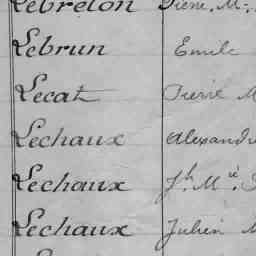 Lebreton Pierre, M.
Lebrun Emile
Lecat Pierre M
Lechaux Alexandre
Lechaux Jh Mie.
Lechaux Julien M